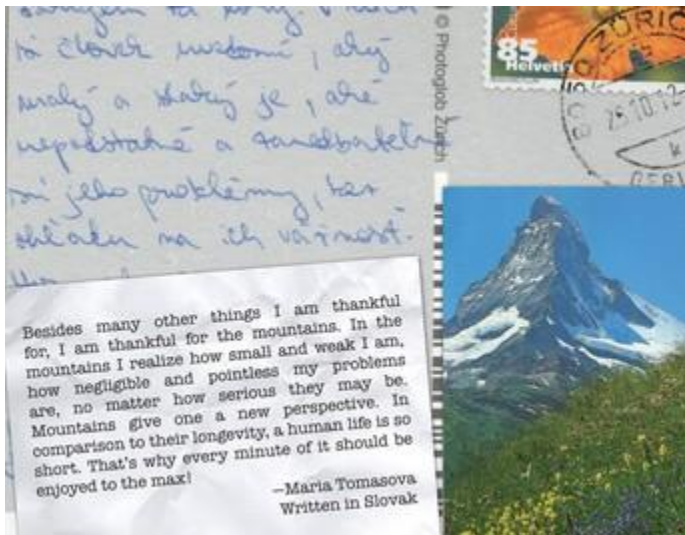 za hory. V horách
si človek uvedomí, aký
malý a slabý je, aké
nepodstatné a zanedbateľné
sú jeho problémy, bez
ohľadu na ich vážnosť.
© Photoglob Zürich
85
Helvetia
ZÜRICH
26.10.12
k
Besides many other things I am thankful
for, I am thankful for the mountains. In the
mountains I realize how small and weak I am,
how negligible and pointless my problems
are, no matter how serious they may be.
Mountains give one a new perspective. In
comparison to their longevity, a human life is so
short. That's why every minute of it should be
enjoyed to the max!
—Maria Tomasova
Written in Slovak